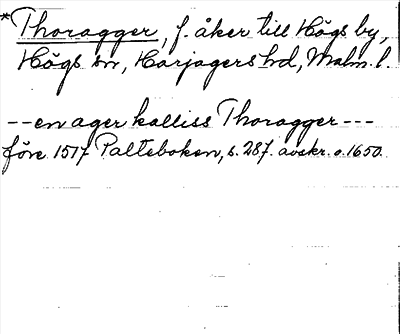 *Thoragger, f. åker till Högs by,
Högs sn, Harjagers hd, Malm. l.
-- en ager kalliss Thoragger ---
före 1517 Palteboken, s. 287. avskr. o. 1650.